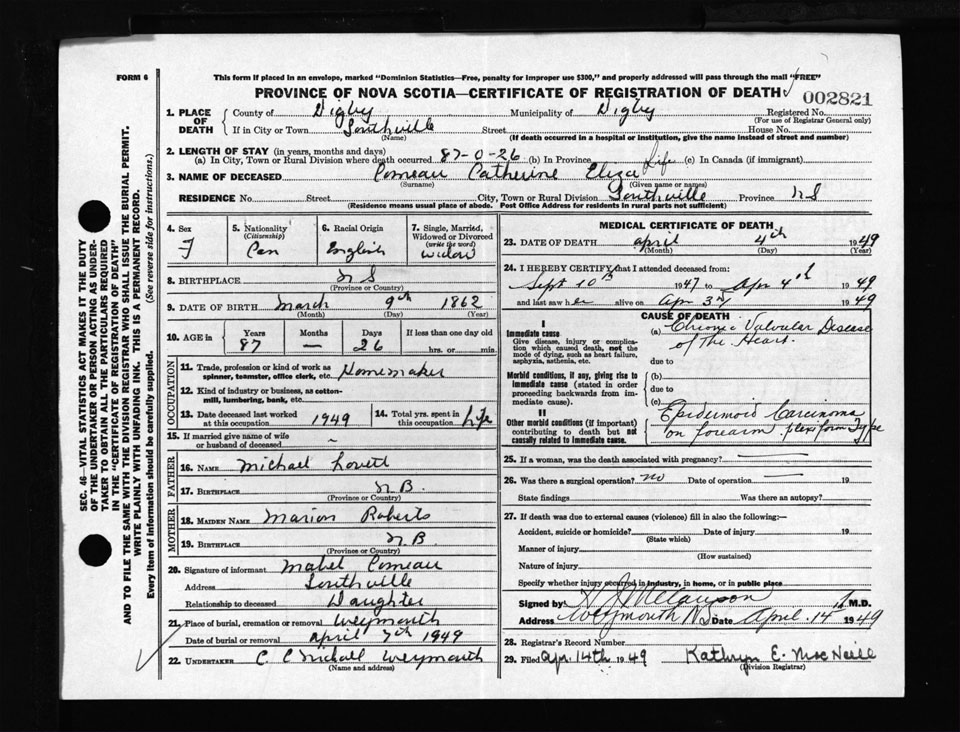 FORM 6
This form if placed in an envelope, marked "Dominion Statistics—Free, penalty for improper use $300," and properly addressed will pass through the mail "FREE"
PROVINCE OF NOVA SCOTIA—CERTIFICATE OF REGISTRATION OF DEATH
002821
1. PLACE OF DEATH
County of Digby Municipality of Digby Registered No.
(For use of Registrar General only)
If in City or Town Southville Street House No.
(Name) (If death occurred in a hospital or institution, give the name instead of street and number)
2. LENGTH OF STAY (in years, months and days)
(a) In City, Town or Rural Division where death occurred 87-0-26 (b) In Province Life (c) In Canada (if immigrant)
3. NAME OF DECEASED Comeau Catherine Eliza
(Surname) (Given name or names)
RESIDENCE No. Street City, Town or Rural Division Southville Province N S
(Residence means usual place of abode. Post Office Address for residents in rural parts not sufficient)
4. Sex F
5. Nationality (Citizenship) Can
6. Racial Origin English
7. Single, Married, Widowed or Divorced (write the word) Widow
8. BIRTHPLACE N S
(Province or Country)
9. DATE OF BIRTH March 9th 1862
(Month) (Day) (Year)
10. AGE in Years Months Days If less than one day old
87 — 26 hrs. or min.
OCCUPATION
11. Trade, profession or kind of work as spinner, teamster, office clerk, etc. Homemaker
12. Kind of industry or business, as cotton-mill, lumbering, bank, etc.
13. Date deceased last worked at this occupation 1949
14. Total yrs. spent in this occupation Life
15. If married give name of wife or husband of deceased –
FATHER
16. NAME Michael Lovett
17. BIRTHPLACE N. B.
(Province or Country)
MOTHER
18. MAIDEN NAME Marion Roberts
19. BIRTHPLACE N. B
(Province or Country)
20. Signature of informant Mabel Comeau
Address Southville
Relationship to deceased Daughter
21. Place of burial, cremation or removal Weymouth
Date of burial or removal April 7th 1949
22. UNDERTAKER C. C. Weymouth
(Name and address)
MEDICAL CERTIFICATE OF DEATH
23. DATE OF DEATH April 4th 1949
(Month) (Day) (Year)
24. I HEREBY CERTIFY that I attended deceased from:
Sept 10th 1947 to Apr 4th 1949
and last saw her alive on Apr 3rd 1949
CAUSE OF DEATH
I
Immediate cause
Give disease, injury or complication which caused death, not the mode of dying, such as heart failure, asphyxia, asthenia, etc.
(a) Chronic Valvular Disease
of the Heart.
due to
Morbid conditions, if any, giving rise to immediate cause (stated in order proceeding backwards from immediate cause).
(b)
due to
(c)
II
Other morbid conditions (if important) contributing to death but not causally related to immediate cause.
Epidermoid Carcinoma
on forearm. plexiform Type
25. If a woman, was the death associated with pregnancy? —
26. Was there a surgical operation? no Date of operation — 19
State findings Was there an autopsy?
27. If death was due to external causes (violence) fill in also the following:—
Accident, suicide or homicide? Date of injury 19
(State which)
Manner of injury
(How sustained)
Nature of injury
Specify whether injury occurred in industry, in home, or in public place
Signed by M.D.
Address Weymouth N.S Date April 14th 1949
28. Registrar's Record Number
29. Filed Apr. 14th 1949 Kathryn E. MacNeill
(Division Registrar)
SEC. 46—VITAL STATISTICS ACT MAKES IT THE DUTY
OF THE UNDERTAKER OR PERSON ACTING AS UNDER-
TAKER TO OBTAIN ALL THE PARTICULARS REQUIRED
IN THE "CERTIFICATE OF REGISTRATION OF DEATH"
AND TO FILE THE SAME WITH THE DIVISION REGISTRAR WHO SHALL ISSUE THE BURIAL PERMIT.
WRITE PLAINLY WITH UNFADING INK. THIS IS A PERMANENT RECORD.
Every item of information should be carefully supplied. (See reverse side for instructions.)